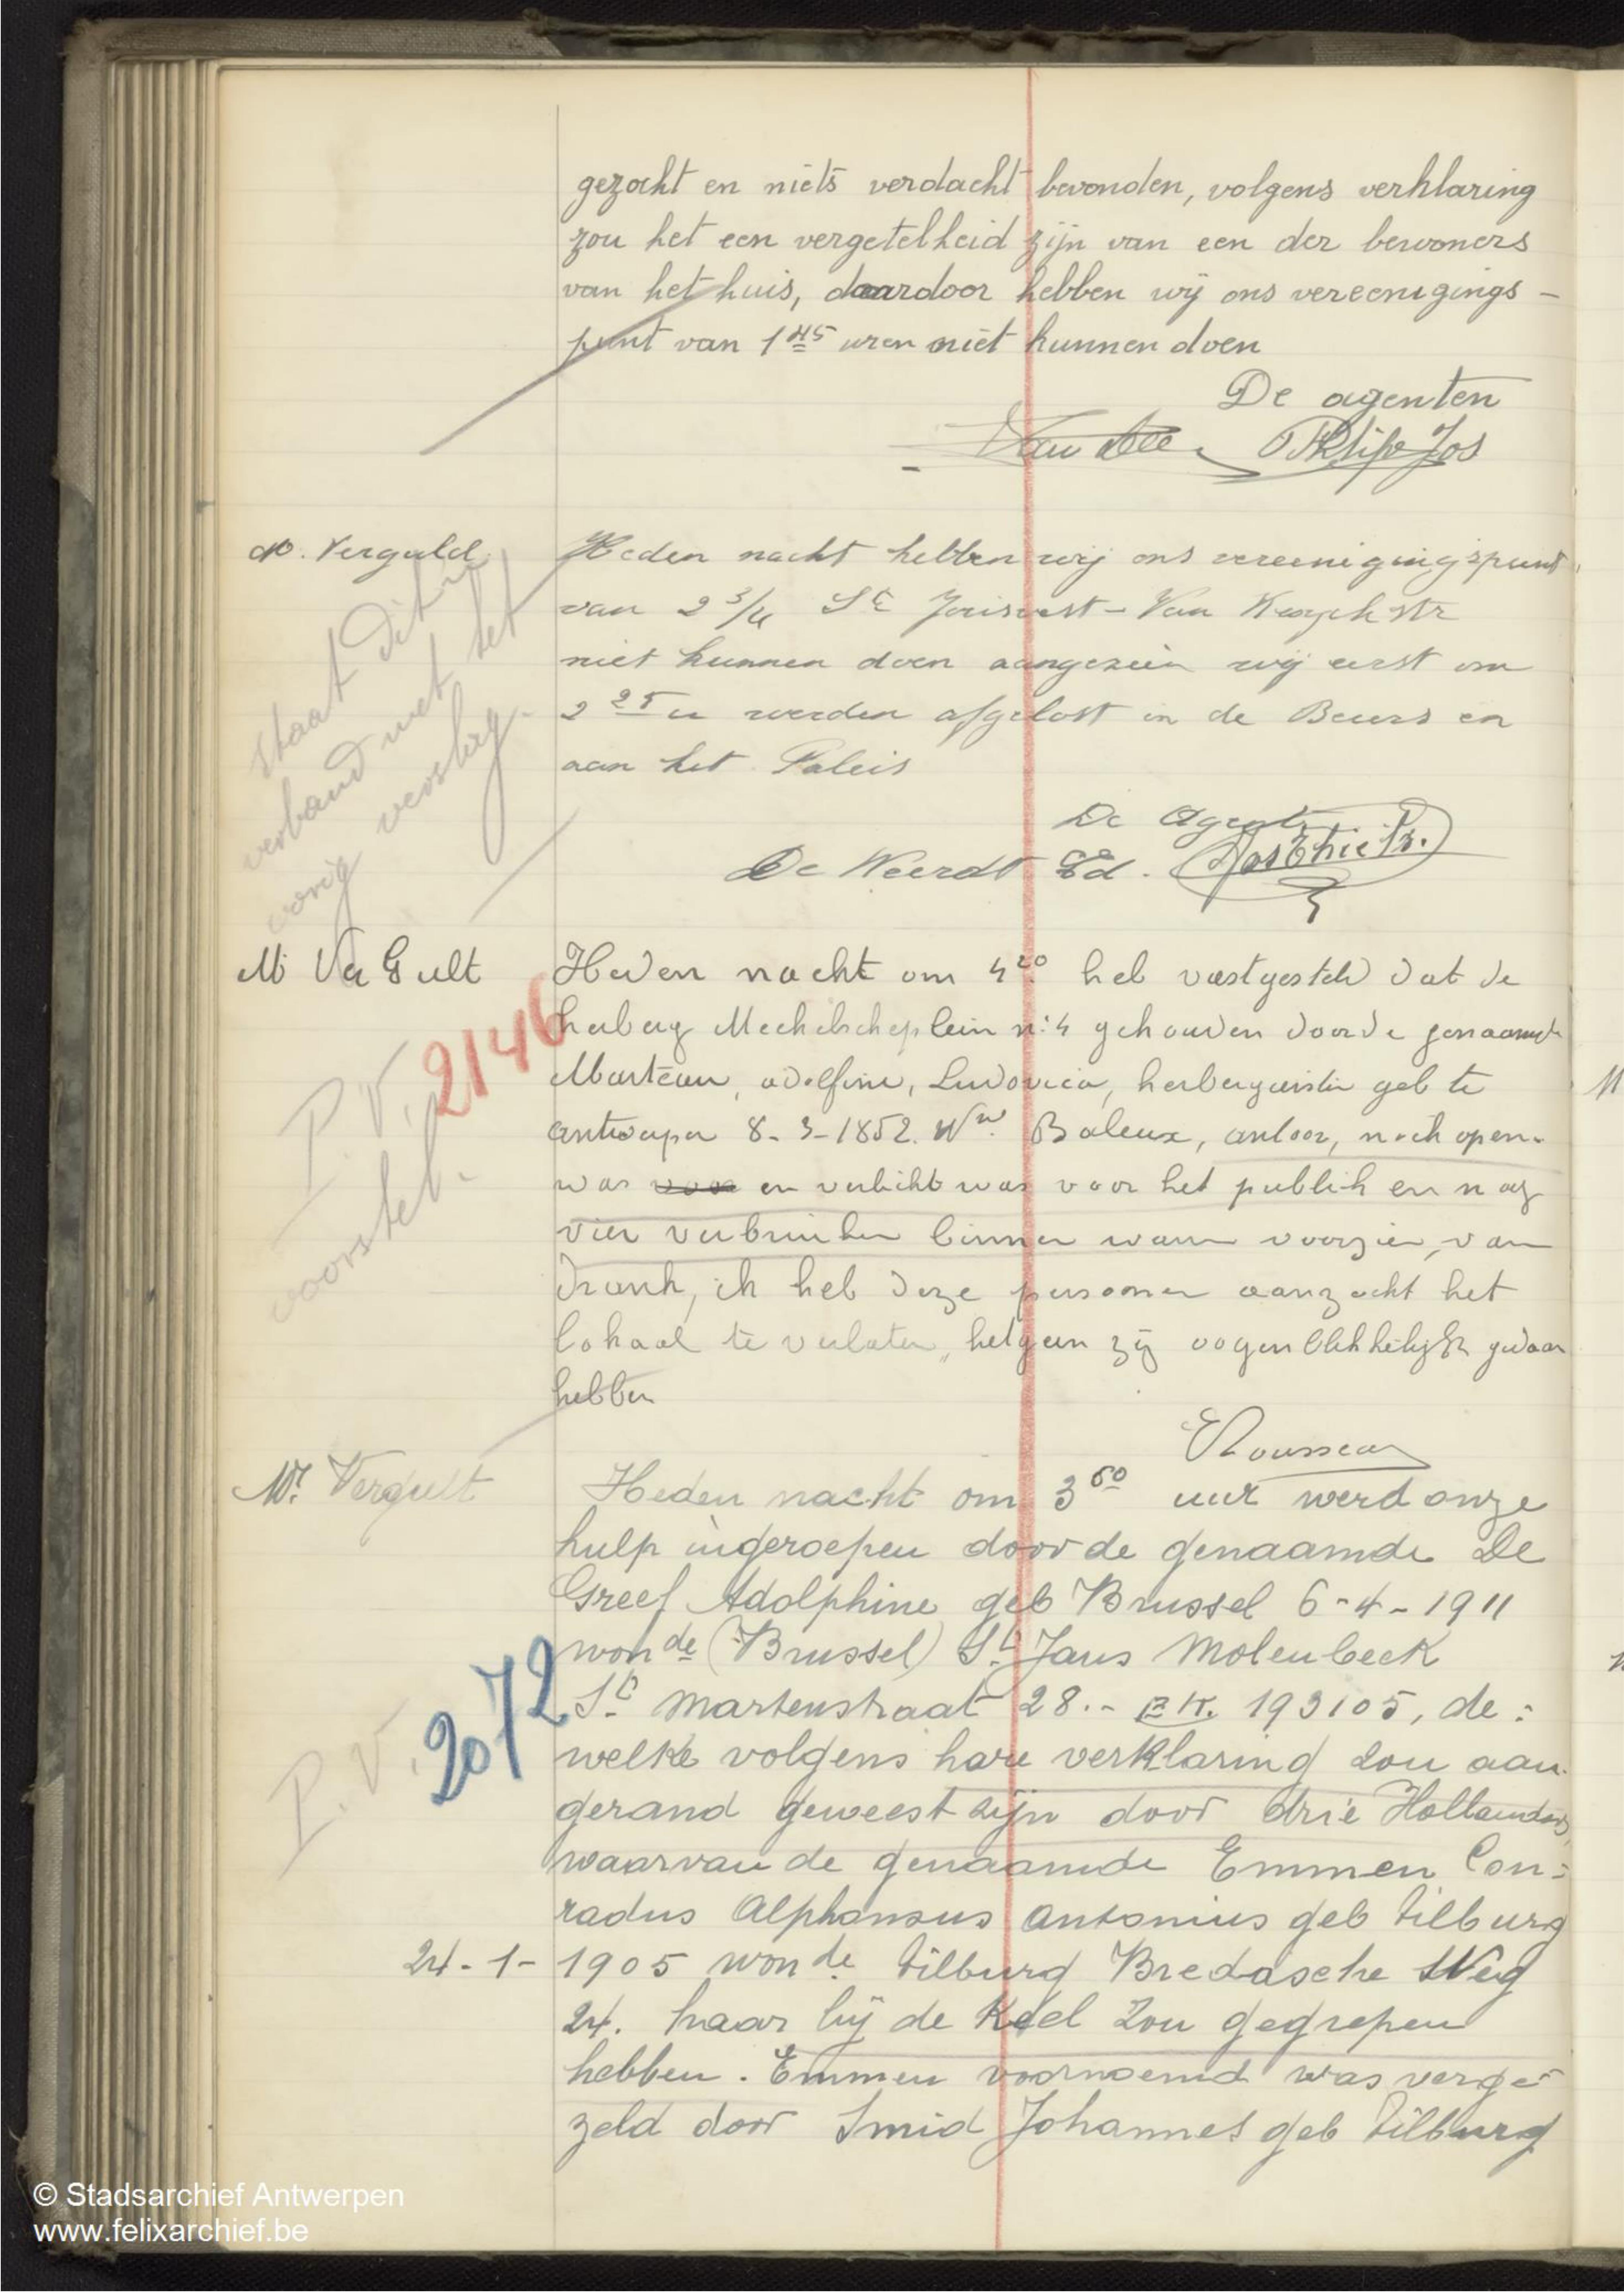 gezocht en niets verdacht bevonden, volgens verklaring
zou het een vergetelheid zijn van een der bewoners
van het huis, daardoor hebben wij ons vereenigings-
punt van 1 45 uren niet kunnen doen
De agenten
Philips Jos
M. Verguld
Heden nacht hebben wij ons vereenigingspunt
van 2 3/4 St Jorisvest - Van Kuyck str
niet kunnen doen aangezien wij eerst om
2 25 u werden afgelost in de Beurs en
aan het Paleis
staat dit in
verband met het
vorig verslag.
De Agenten
De Weerdt Ed.
M Ver Gult
Heden nacht om 4 20 heb vastgesteld dat de
herberg Mechelscheplein n: 4 gehouden door de genaamde
Marteau, adolfine, Ludovica, herbergierster geb te
antwerpen 8-3-1852. Wwe Baleux, anloor, noch open-
was voor en verlicht was voor het publiek en nog
vier verbruikers binnen waren voorzien, van
drank, ik heb deze personen aanzocht het
lokaal te verlaten, hetgeen zij oogenblikkelijk gedaan
hebben
P.V. 2146
voorstel.
Rousseau
Mr. Vergult
Heden nacht om 3 50 uur werd onze
hulp ingeroepen door de genaamde De
Greef Adolphine geb Brussel 6-4-1911
won de (Brussel) St Jans Molenbeek
St Martenstraat 28.- E.K. 193105, de:
welke volgens hare verklaring zou aan-
gerand geweest zijn door drie Hollanders,
waarvan de genaamde Emmen Con:
radus Alphonsus Antonius geb Tilburg
24-1-1905 won de Tilburg Bredasche Weg
24. haar bij de keel zou gegrepen
hebben. Emmen voornoemd was verge-
zeld door Smid Johannes geb Tilburg
P.V. 2072
© Stadsarchief Antwerpen
www.felixarchief.be